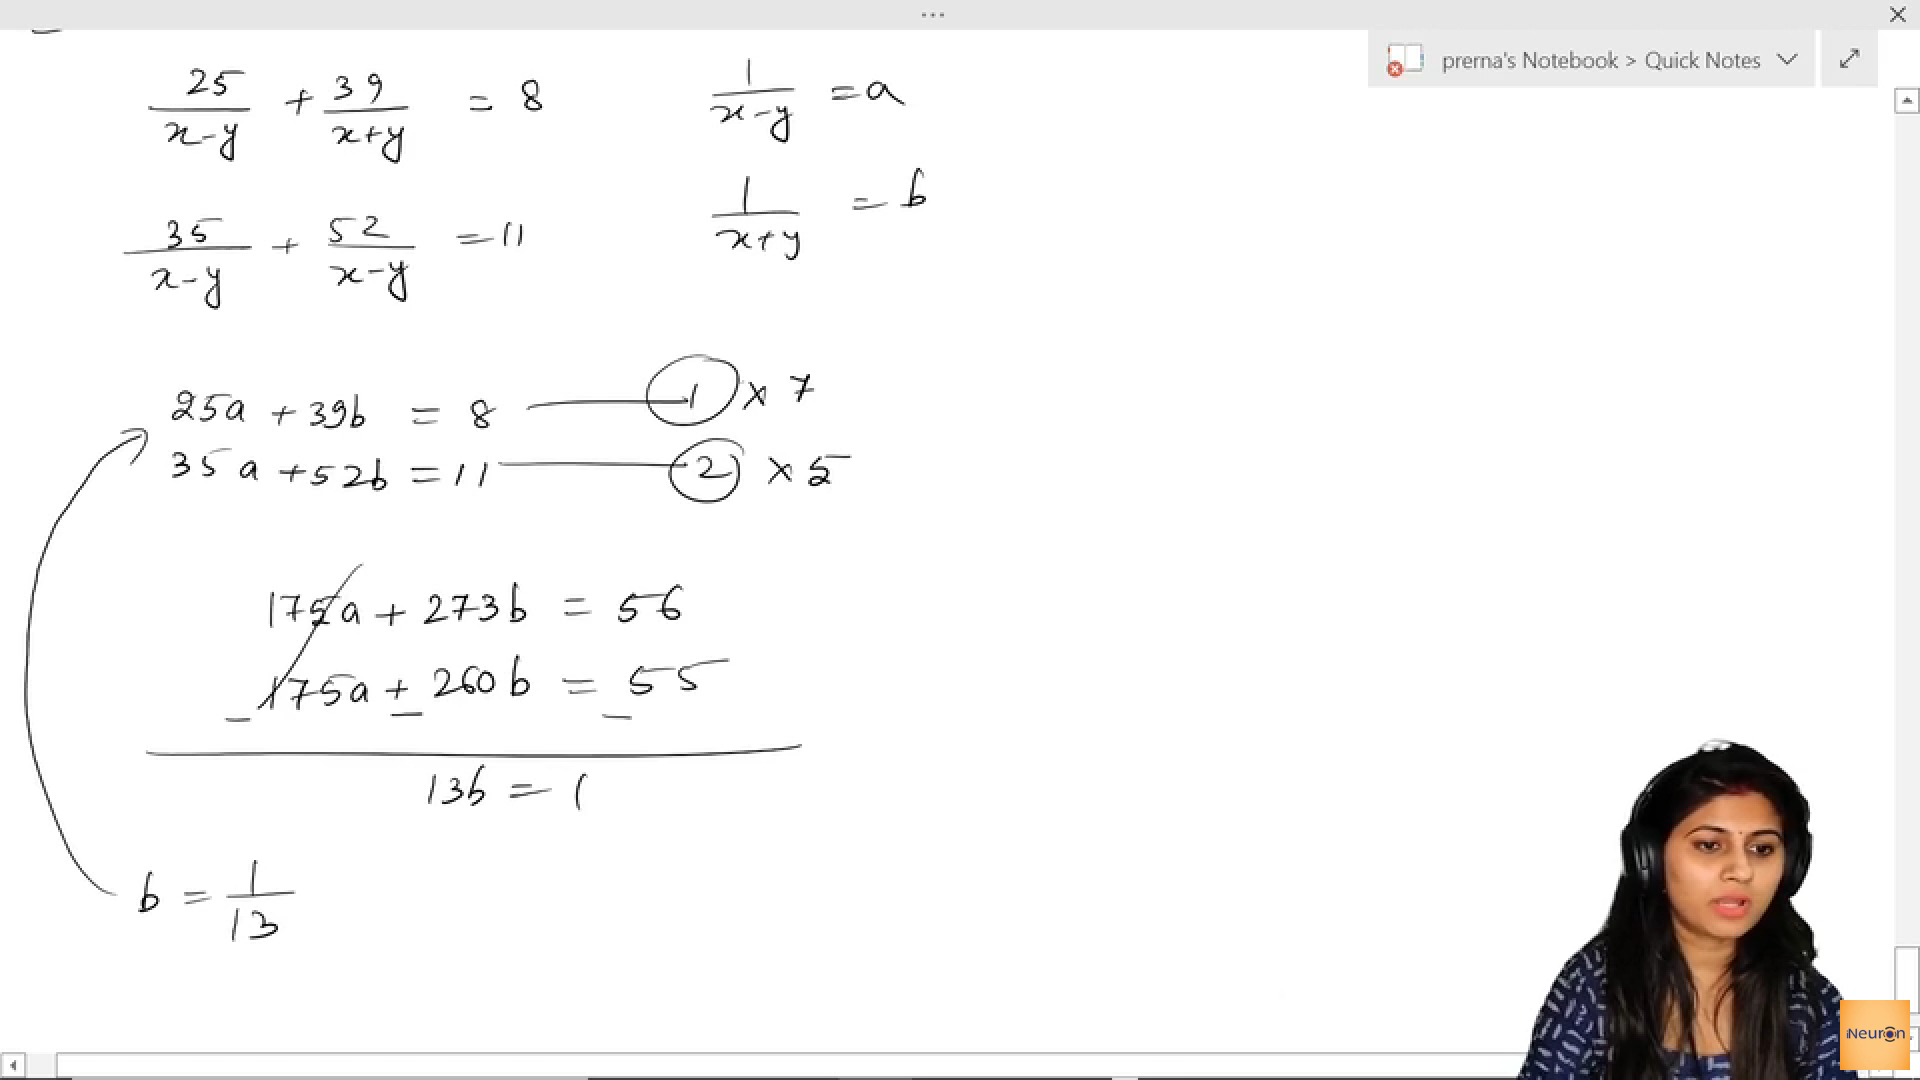 prerna's Notebook > Quick Notes
25/(x-y) + 39/(x+y) = 8
1/(x-y) = a
35/(x-y) + 52/(x-y) = 11
1/(x+y) = b
25a + 39b = 8 — 1 × 7
35a + 52b = 11 — 2 × 5
175a + 273b = 56
175a + 260b = 55
− − −
13b = 1
b = 1/13
Neuron